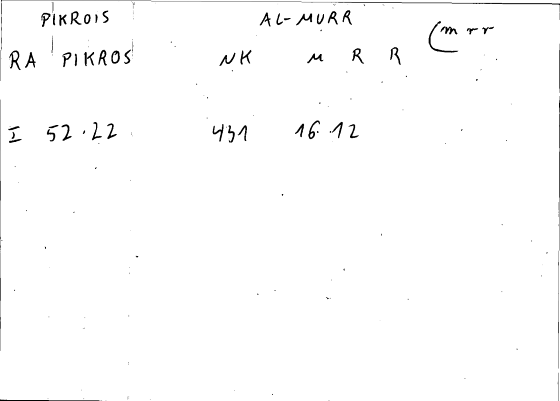 PIKROIS AL-MURR (mrr
RA PIKROS NK M R R
I 52.22 431 16.12